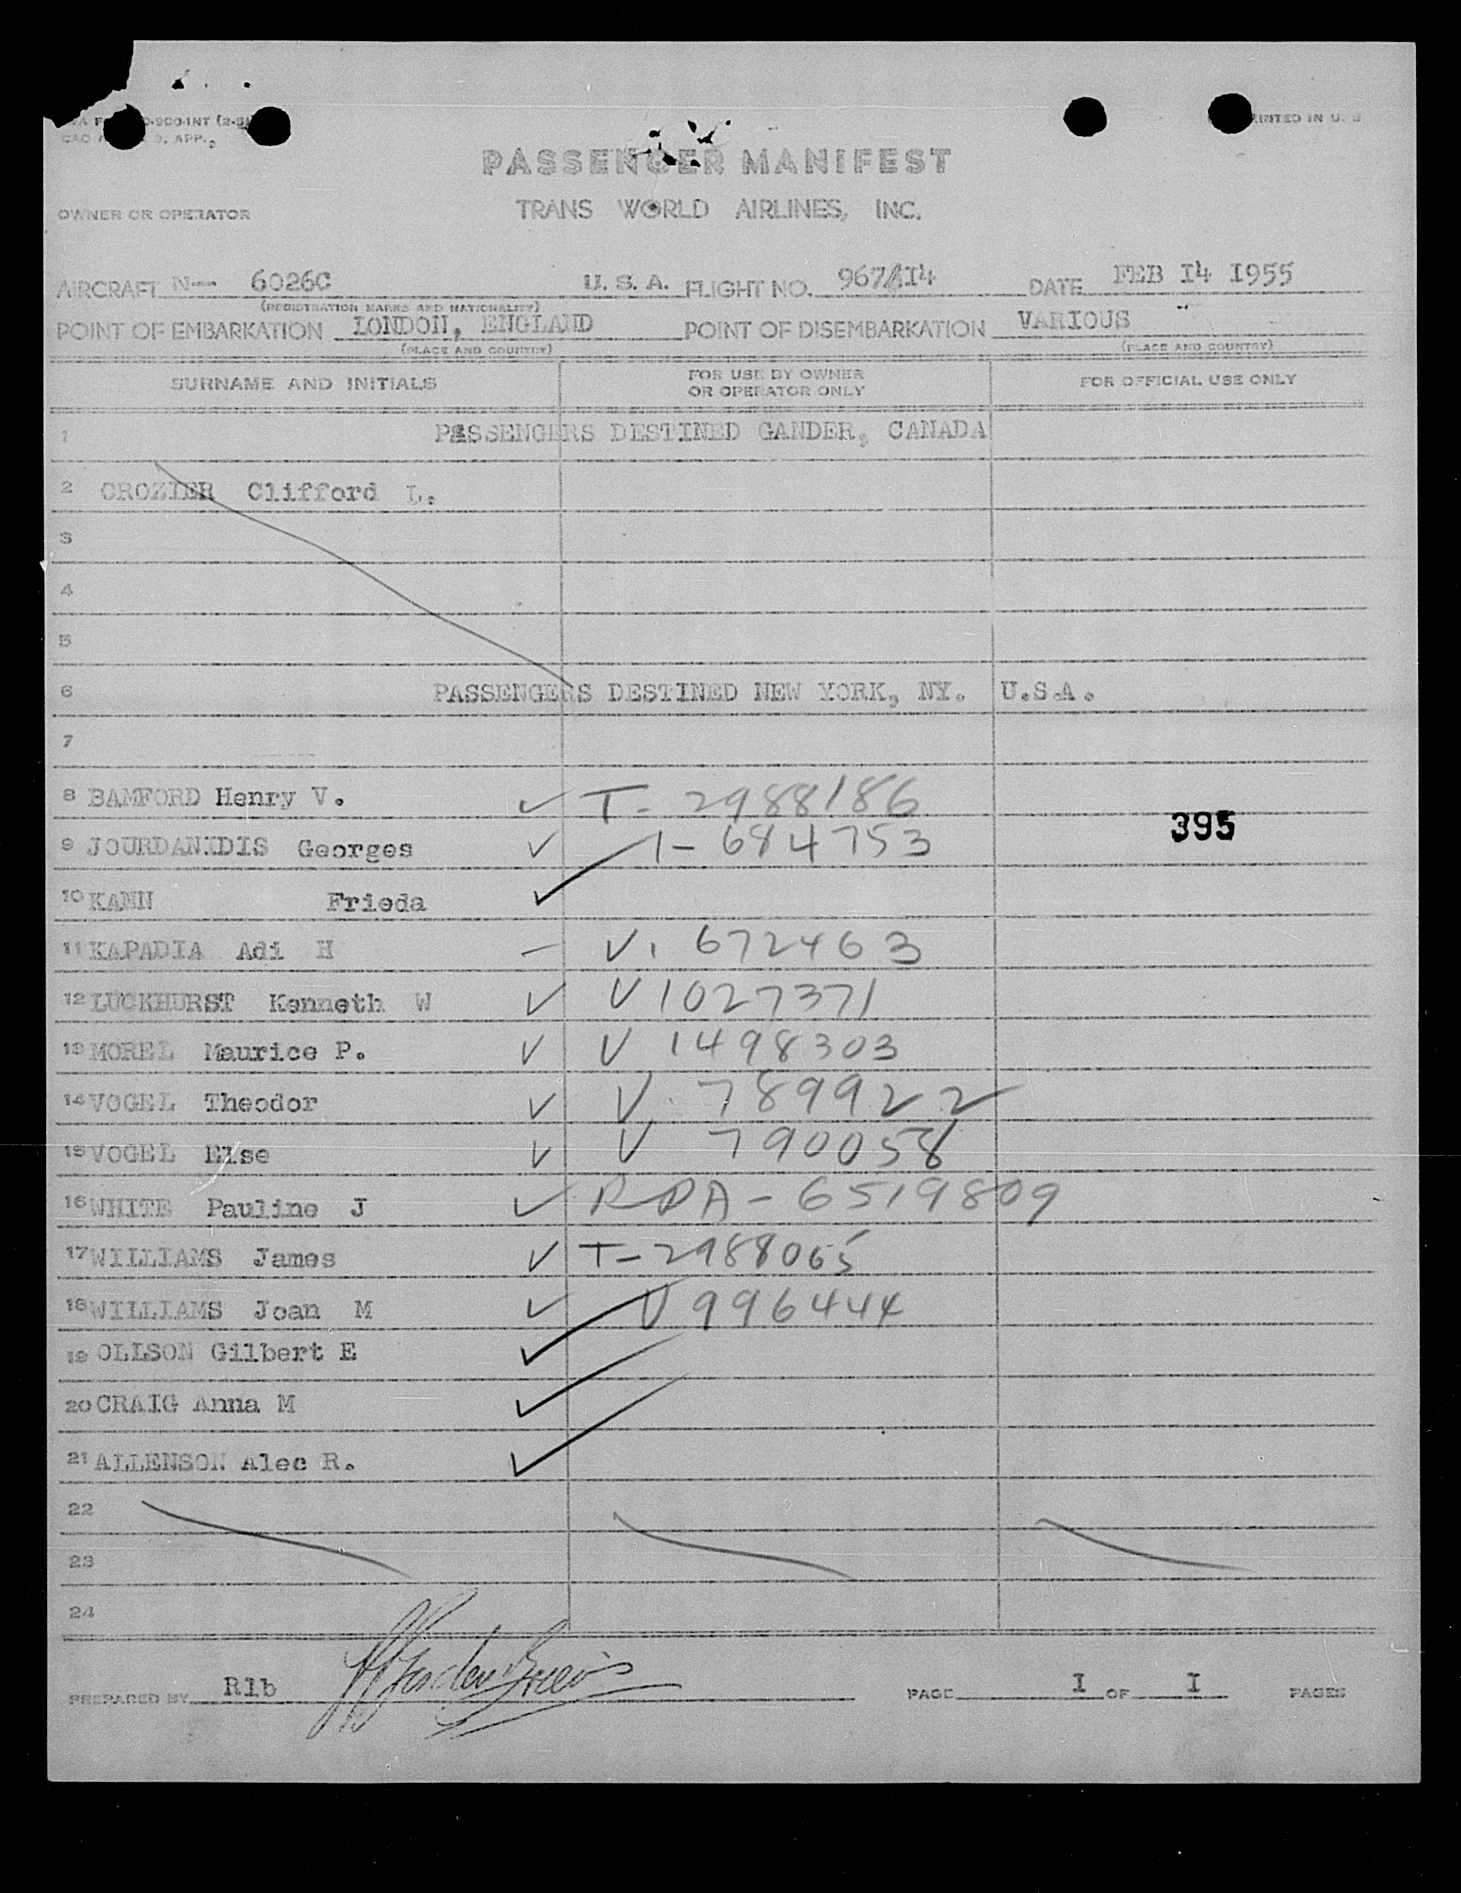 PRINTED IN U. S
PASSENGER MANIFEST
OWNER OR OPERATOR TRANS WORLD AIRLINES, INC.
AIRCRAFT N— 6026C U. S. A. FLIGHT NO. 967/14 DATE FEB 14 1955
(REGISTRATION MARKS AND NATIONALITY)
POINT OF EMBARKATION LONDON, ENGLAND POINT OF DISEMBARKATION VARIOUS
(PLACE AND COUNTRY) (PLACE AND COUNTRY)
SURNAME AND INITIALS FOR USE BY OWNER OR OPERATOR ONLY FOR OFFICIAL USE ONLY
1 PASSENGERS DESTINED GANDER, CANADA
2 CROZIER Clifford L.
3
4
5
6 PASSENGERS DESTINED NEW YORK, NY. U.S.A.
7
8 BAMFORD Henry V. ✓ T- 2988186
395
9 JOURDANIDIS Georges ✓ I- 684753
10 KANN Frieda ✓
11 KAPADIA Adi H — V. 672463
12 LUCKHURST Kenneth W ✓ V 1027371
13 MOREL Maurice P. ✓ V 1498303
14 VOGEL Theodor ✓ V. 789922
15 VOGEL Else ✓ V 790058
16 WHITE Pauline J ✓ RDA- 6519809
17 WILLIAMS James ✓ T- 2988065
18 WILLIAMS Joan M ✓ V 996444
19 OLLSON Gilbert E ✓
20 CRAIG Anna M ✓
21 ALLENSON Alec R. ✓
22
23
24
PREPARED BY Rlb PAGE I OF I PAGES